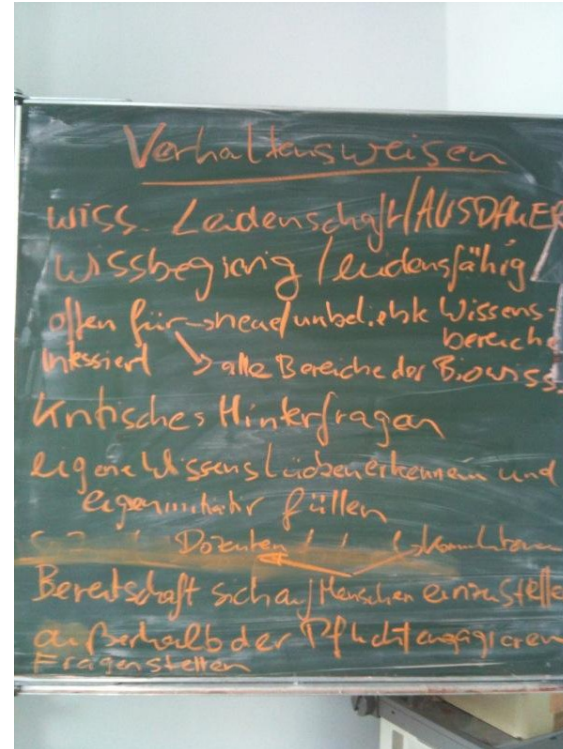 Verhaltensweisen
wiss. Leidenschaft/AUSDAUER
wissbegierig/leidensfähig
offen für → neue/unbeliebte Wissens-
bereiche
Intessiert → alle Bereiche der Biowiss.
Kritisches Hinterfragen
eigene Wissenslücken erkennen und
eigeninitiativ füllen
Dozenten Kommilitonen
Bereitschaft sich auf Menschen einzustelle
außerhalb der Pflicht engagieren
Fragen stellen